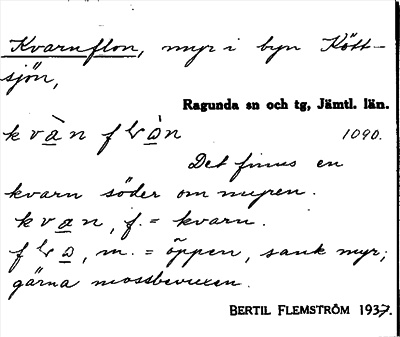 Kvarnflon, myr i byn Kött-
sjön,
Ragunda sn och tg, Jämtl. län.
kvàn flɔ̀n 1090.
Det finns en
kvarn söder om myren.
kvan, f. = kvarn.
flɔ, m. = öppen, sank myr;
gärna mossbevuxen.
BERTIL FLEMSTRÖM 1937.